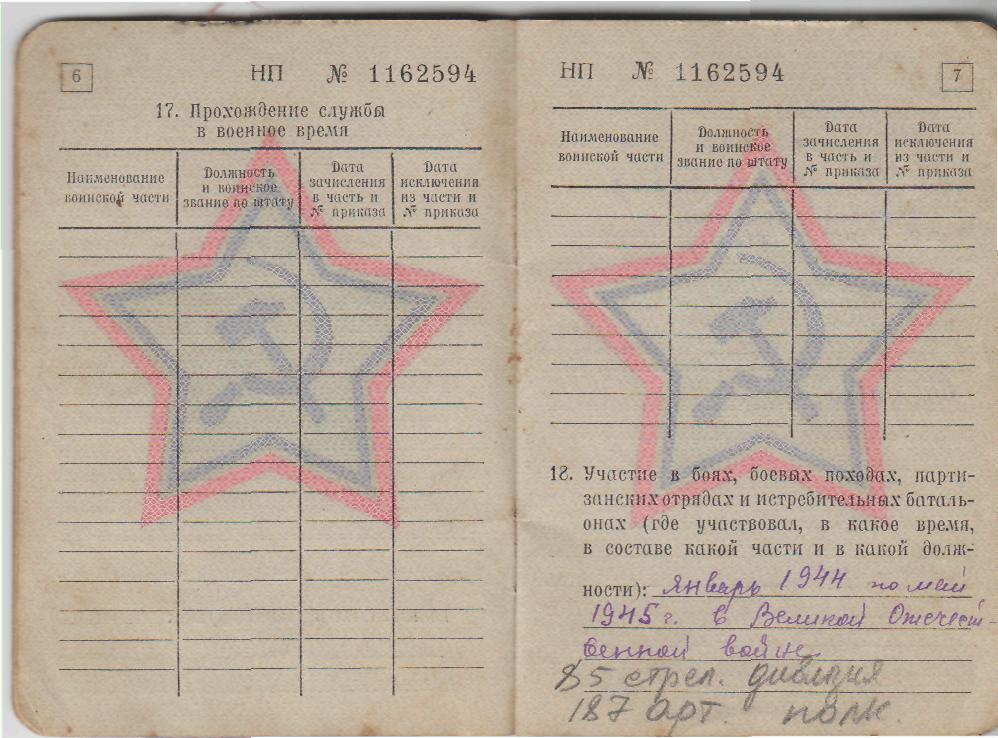 6
НП № 1162594
17. Прохождение службы
в военное время
Наименование
воинской части
Должность
и воинское
звание по штату
Дата
зачисления
в часть и
№ приказа
Дата
исключения
из части и
№ приказа
НП № 1162594
7
Наименование
воинской части
Должность
и воинское
звание по штату
Дата
зачисления
в часть и
№ приказа
Дата
исключения
из части и
№ приказа
18. Участие в боях, боевых походах, парти-
занских отрядах и истребительных баталь-
онах (где участвовал, в какое время,
в составе какой части и в какой долж-
ности): январь 1944 по май
1945 г. в Великой Отечест-
венной войне
85 стрел. дивизия
187 арт. полк.